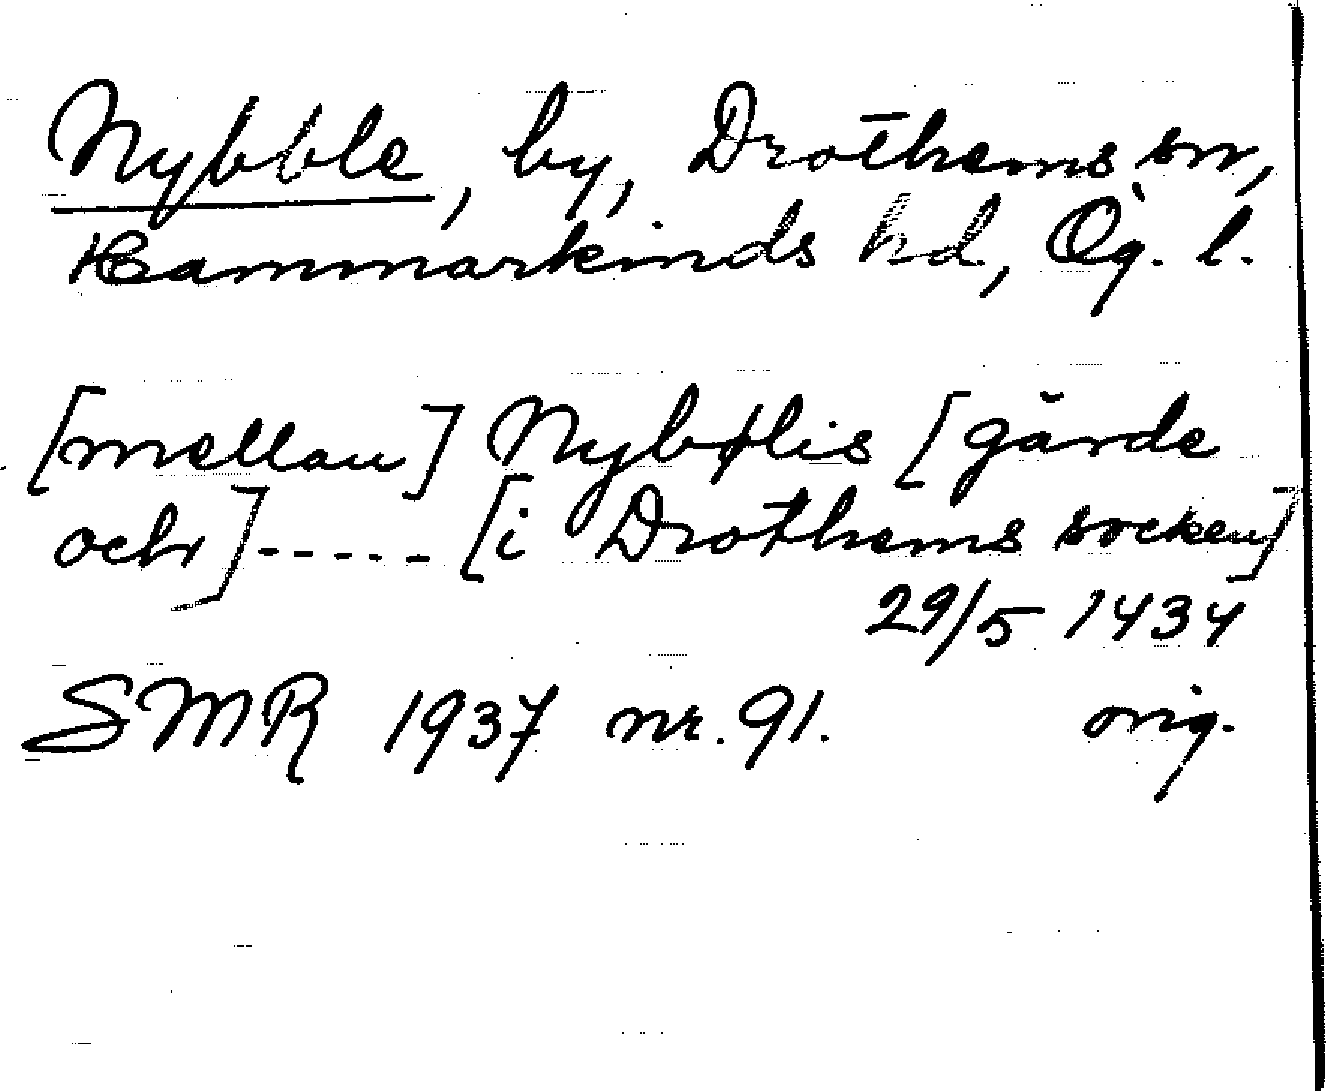 Nybble, by, Drothems sn,
Hammarkinds hd, Ög. l.
[mellan] Nybtlis [gärde
och]----- [i Drothems socken]
29/5 1434
SMR 1937 nr. 91. orig.